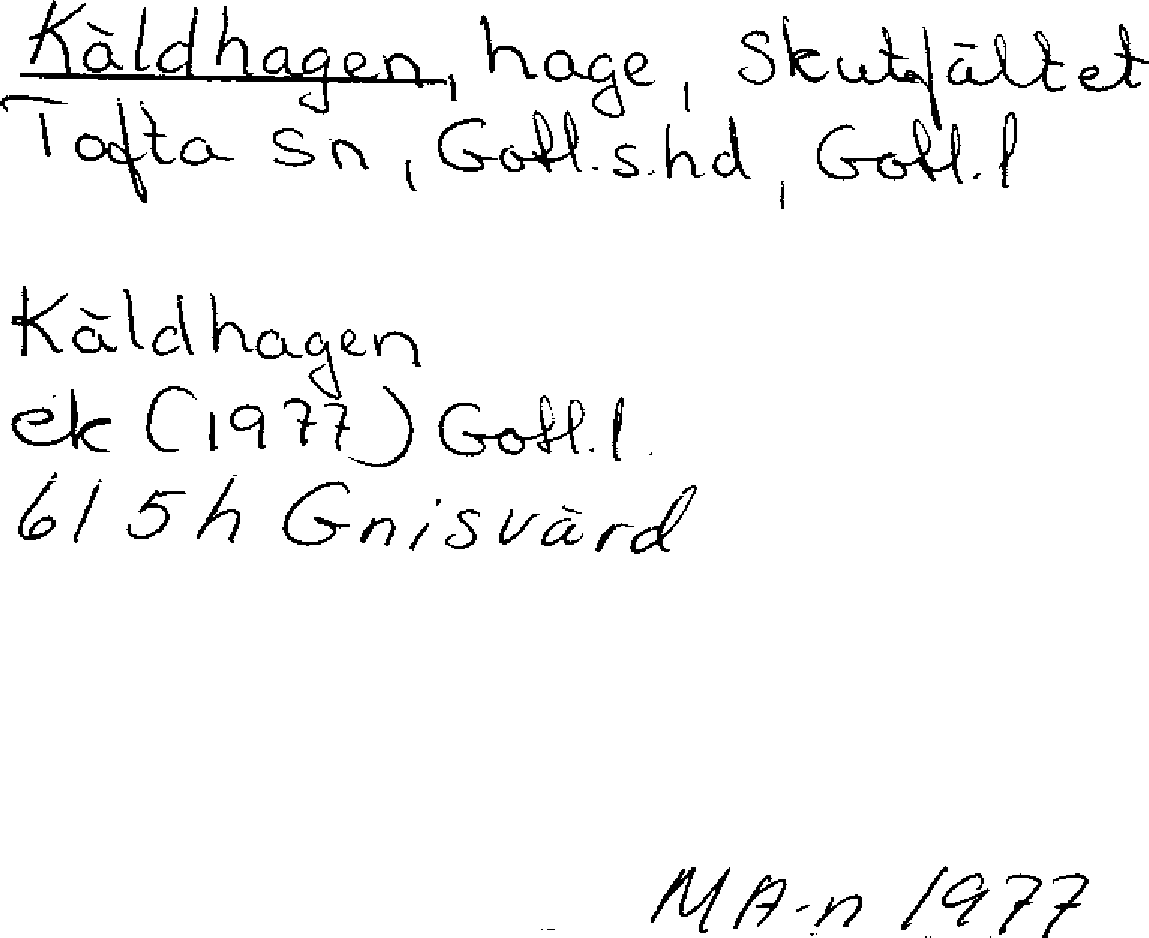 Käldhagen, hage, Skutfältet
Tofta sn, Gotl.s.hd, Gotl.l
Käldhagen
ek (1977) Gotl.l.
6I 5h Gnisvärd
MA-n 1977